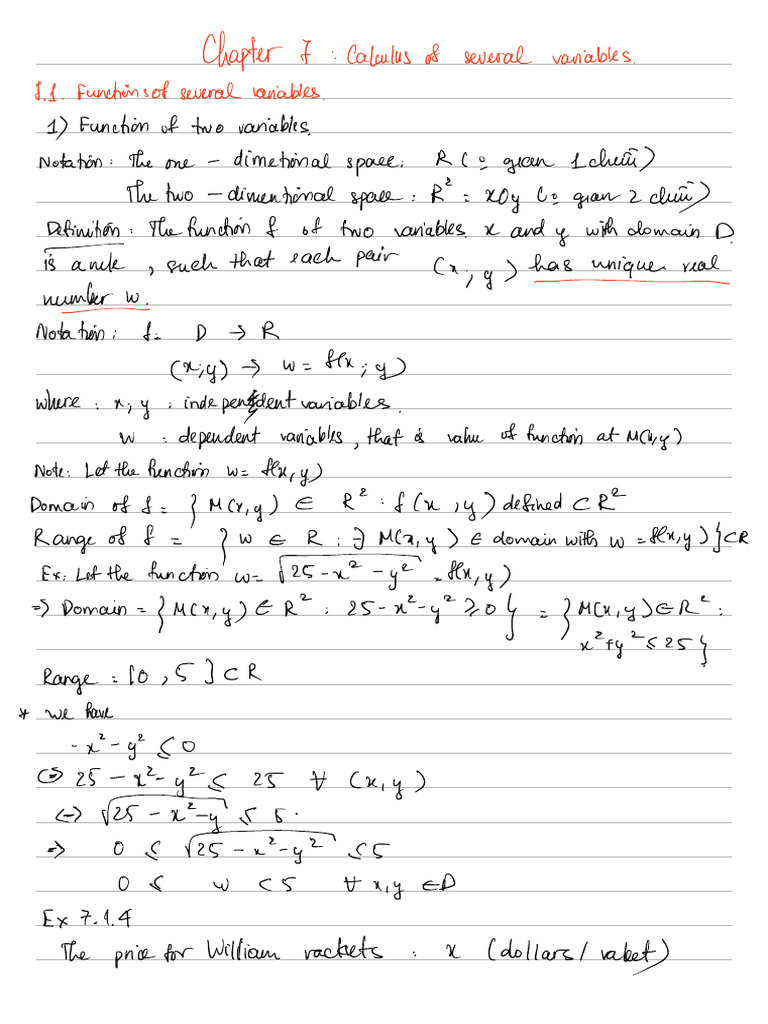 Chapter 7 : Calculus of several variables.
7.1. Functions of several variables.
1) Function of two variables.
Notation : The one - dimetional space : R (ko gian 1 chiều)
The two - dimentional space : R² = xOy (ko gian 2 chiều)
Definition : The function f of two variables x and y with domain D
is a rule , such that each pair (x ; y) has unique real
number w.
Notation : f: D → R
(x;y) → w = f(x ; y)
where : x, y : independent variables.
w : dependent variables, that is value of function at M(x,y)
Note : Let the function w = f(x, y)
Domain of f = { M(x,y) ∈ R² : f(x ,y) defined ⊂ R²
Range of f = { w ∈ R : ∃ M(x,y) ∈ domain with w = f(x,y) } ⊂ R
Ex : Let the function w = √25 - x² - y² = f(x,y)
=> Domain = { M(x,y) ∈ R² : 25 - x² - y² ≥ 0 } = { M(x,y) ∈ R² :
x² + y² ≤ 25 }
Range = [0 , 5 ] ⊂ R
* we have
- x² - y² ≤ 0
<=> 25 - x² - y² ≤ 25 ∀ (x,y)
<-> √25 - x² - y ≤ 5.
=> 0 ≤ √25 - x² - y² ≤ 5
0 ≤ w < 5 ∀ x,y ∈ D
Ex 7.1.4
The price for William rackets : x (dollars / raket)